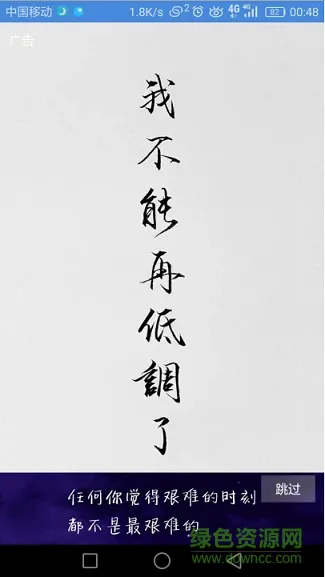 中国移动 1.8K/s 2 4G 4G 82 00:48
广告
我不能再低調了
跳过
任何你觉得艰难的时刻
都不是最艰难的
绿色资源网
www.downcc.com